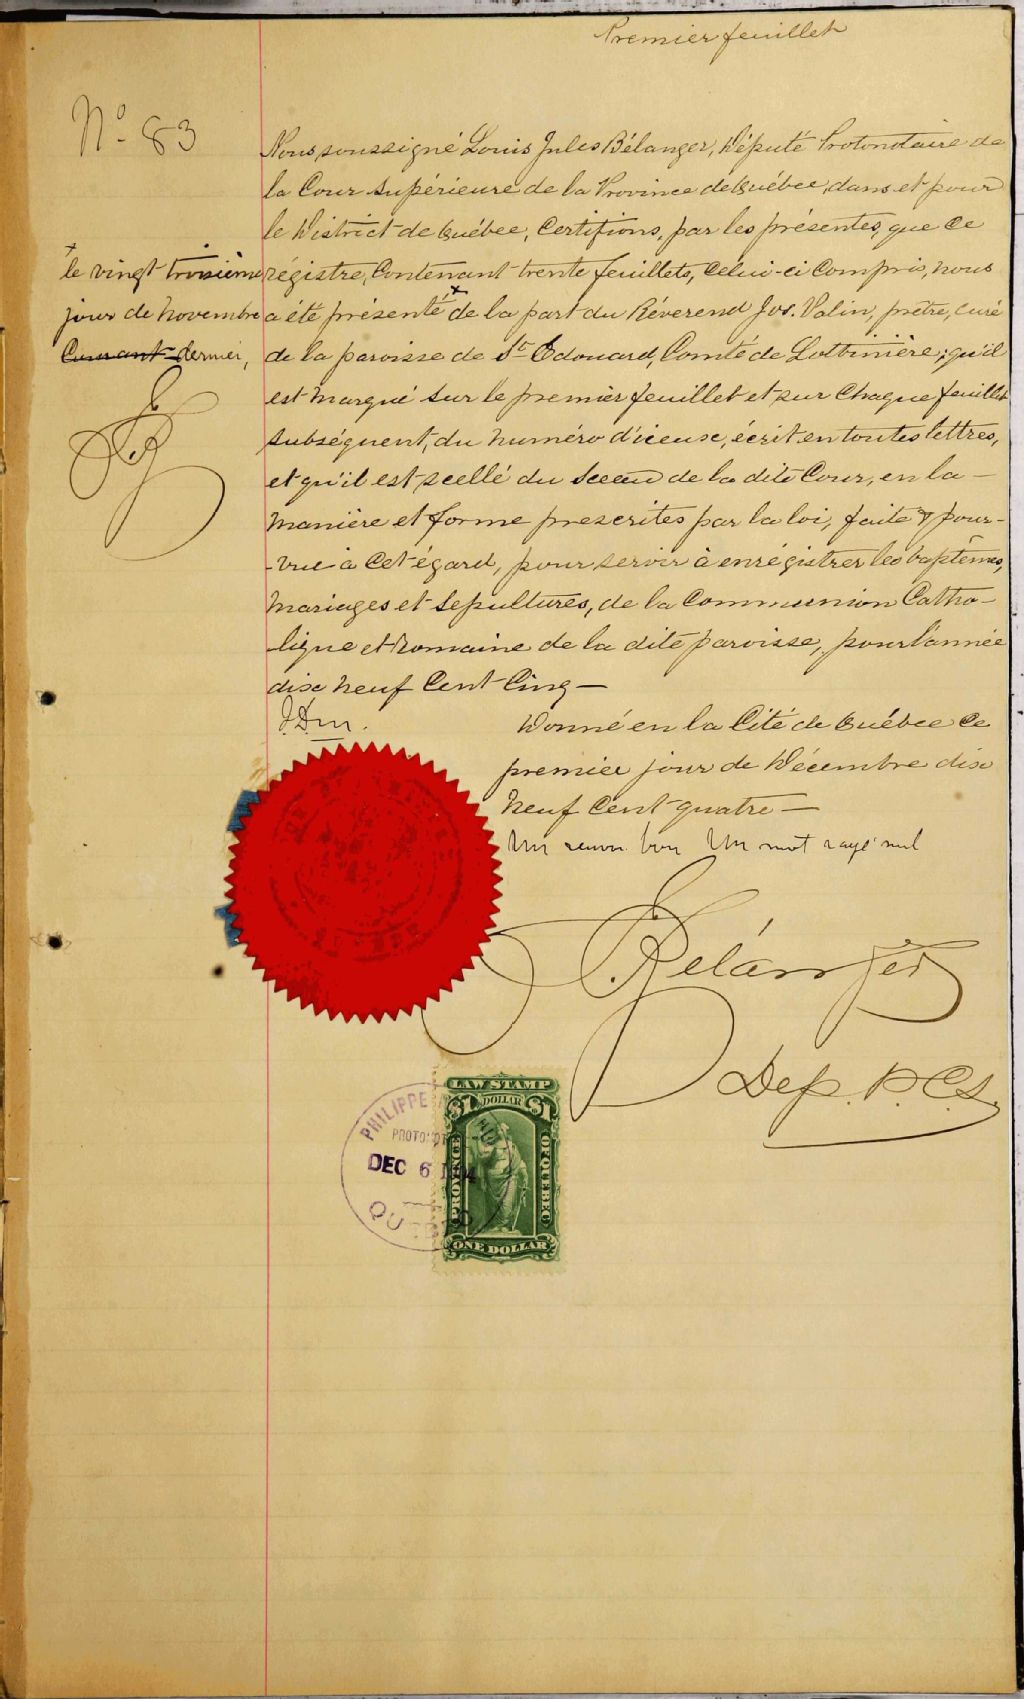 Premier feuillet
No 83
Nous soussigné Louis Jules Bélanger, Député Protonotaire de
la Cour Supérieure de la Province de Québec, dans et pour
le District de Québec, Certifions, par les présentes, que ce
+
le vingt troisième
jour de novembre
Courant dernier,
régistre, Contenant trente feuillets, Celui-ci Compris, nous
a été présenté x de la part du Réverend Jos. Valin, prêtre, curé
de la paroisse de St Edouard, Comté de Lotbinière; qu'il
est marqué sur le premier feuillet et sur Chaque feuillet
subséquent, du numéro d'iceux, écrit en toutes lettres,
et qu'il est scellé du Sceau de la dite Cour, en la -
manière et forme prescrites par la loi, faite & pour-
-vue à cet égard, pour servir à enrégistrer les baptêmes,
mariages et Sepultures, de la Communion Catho-
-lique et Romaine de la dite paroisse, pour l'année
dix neuf Cent Cinq —
Donné en la Cité de Québec Ce
premier jour de Décembre dix
neuf Cent quatre —
Un renvoi bon Un mot rayé nul
Bélanger
Dep. P.C.S.
LAW STAMP
$1 DOLLAR $1
PROVINCE
OF QUEBEC
ONE DOLLAR
PHILIPPE
DEC 6 1904
QUEBEC